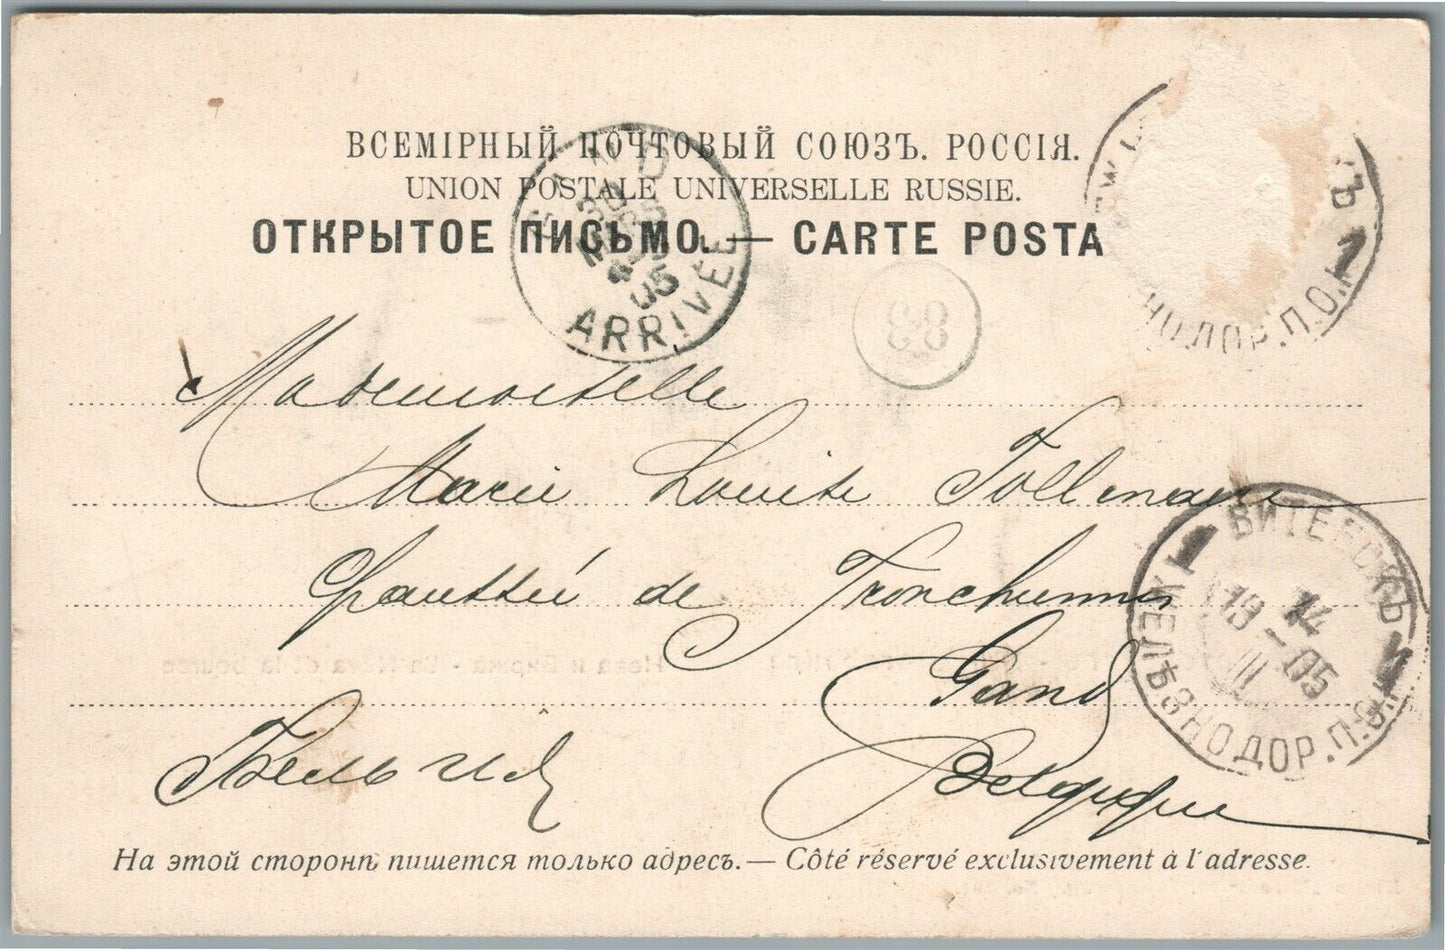 ВСЕМІРНЫЙ ПОЧТОВЫЙ СОЮЗЪ. РОССІЯ.
UNION POSTALE UNIVERSELLE RUSSIE.
ОТКРЫТОЕ ПИСЬМО. — CARTE POSTA
GAND
05
ARRIVÉE
33
Ъ 1
НОДОР. П. О.
Mademoiselle
Marie Louise Tollmann
de
Gand
Бельгия
Belgique
1 ВИТЕБСКЪ 1
14
19 - 05
III
ЖЕЛѢЗНОДОР. П.
На этой сторонѣ пишется только адресъ. — Côté réservé exclusivement à l'adresse.